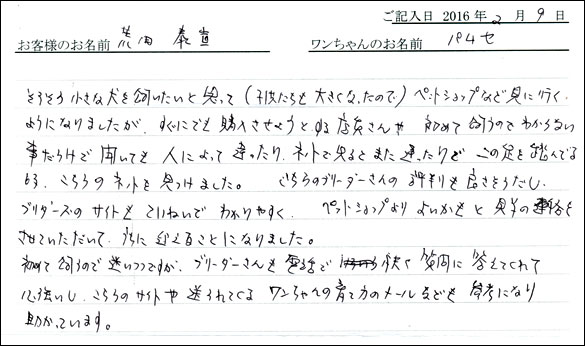 ご記入日 2016年 2月 9日
お客様のお名前 荒田 泰宣 ワンちゃんのお名前 パルセ
そろそろ小さな犬を飼いたいと思って（子供たちも大きくなったので）ペットショップなど見に行く
ようになりましたが、すぐにでも購入させようとする店員さんや 初めて飼うのでわからない
事だらけで聞いても 人によって違ったり、ネットで見るとまた違ったりで この足を踏んでる
時、こちらのネットを見つけました。 どちらのブリーダーさんの評判も良さそうだし、
ブリーダーズのサイトもていねいでわかりやすく、ペットショップよりよいかもと見学の連絡を
させていただいて、家に迎えることになりました。
初めて飼うので迷いつつですが、ブリーダーさんも電話で 快く質問に答えてくれて
心強いし、こちらのサイトや送られてくるワンちゃんの育て方のメールなども参考になり
助かっています。